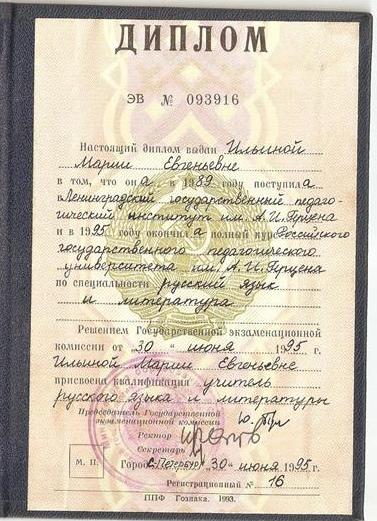 ДИПЛОМ
ЭВ № 093916
Настоящий диплом выдан Ильиной
Марии Евгеньевне
в том, что она в 1989 году поступила
в Ленинградский государственный педаго-
гический институт им. А.И. Герцена
и в 1995 году окончила полный курс Российского
государственного педагогического
университета им. А.И. Герцена
по специальности русский язык
и литература
Решением Государственной экзаменационной
комиссии от 30 „ июня 1995 г.
Ильиной Марии Евгеньевне
присвоена квалификация учитель
русского языка и литературы
Председатель Государственной
экзаменационной комиссии
Ректор
Секретарь
М. П.
Город С.-Петербург 30 „ июня 1995 г.
Регистрационный № 16
ППФ Гознака. 1993.